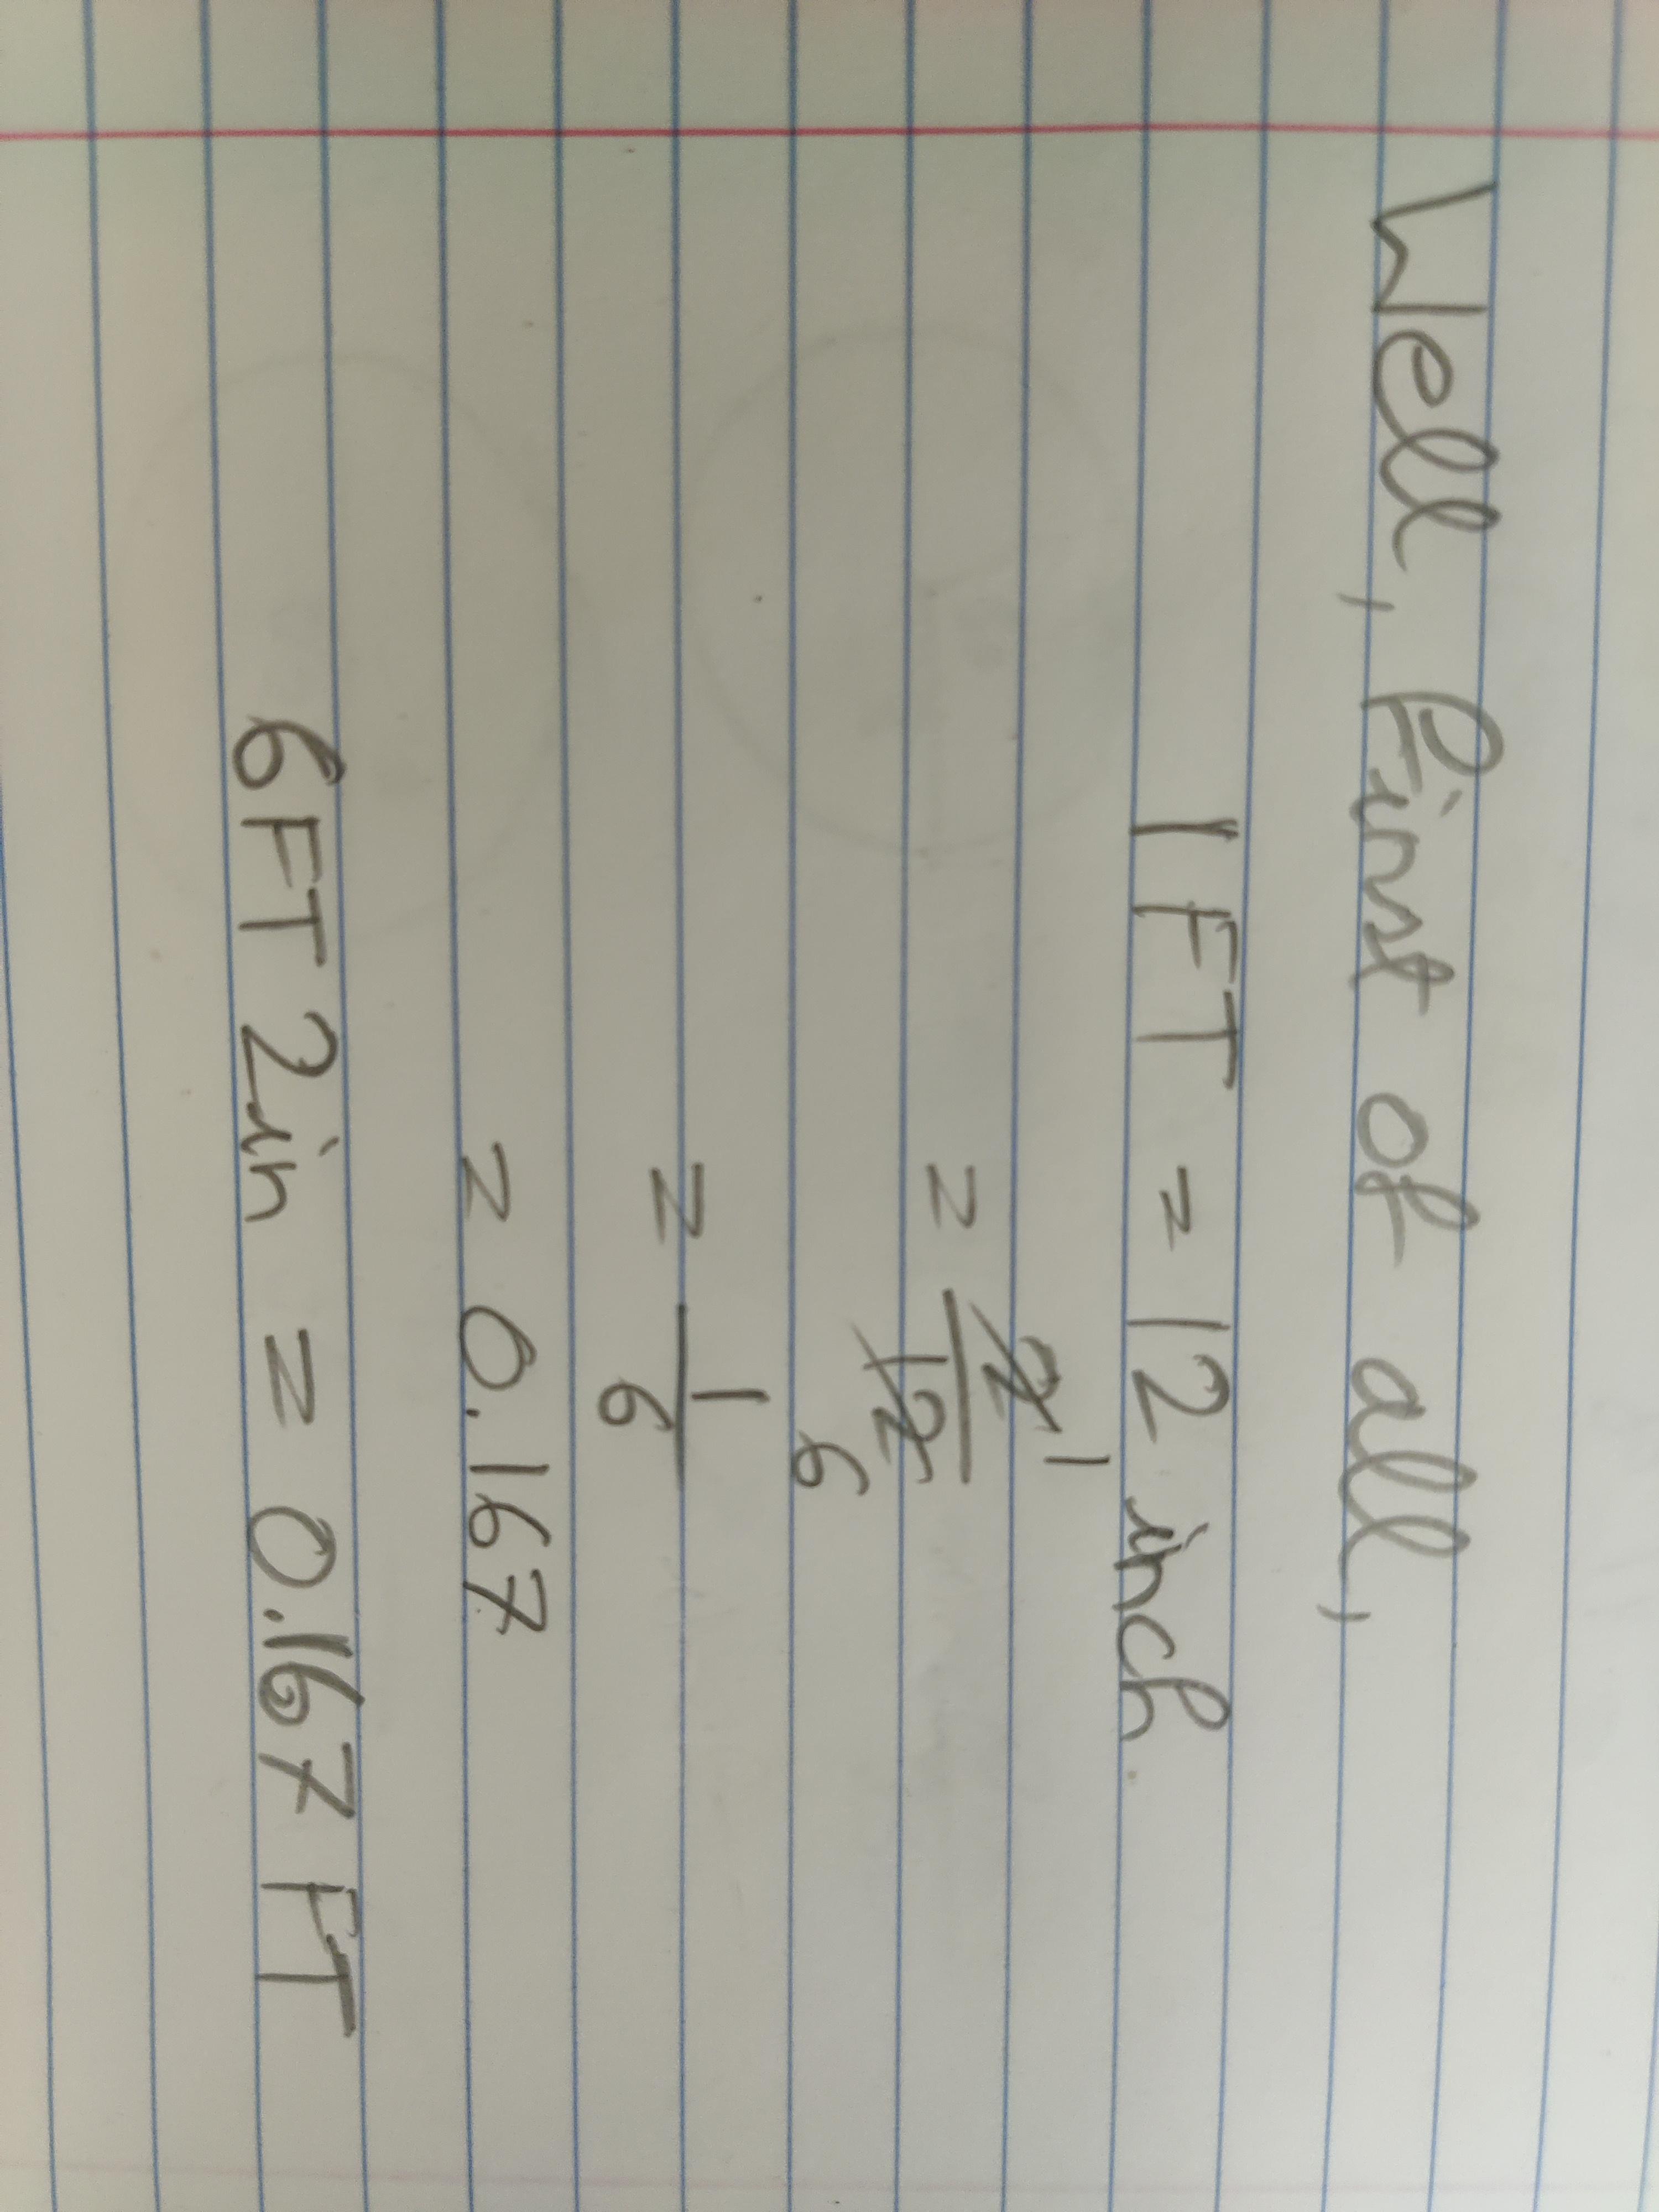 Well, First of all,
1 FT = 12 inch.
= 2/12 1 6
= 1/6
= 0.167
6FT 2in = 0.167 FT